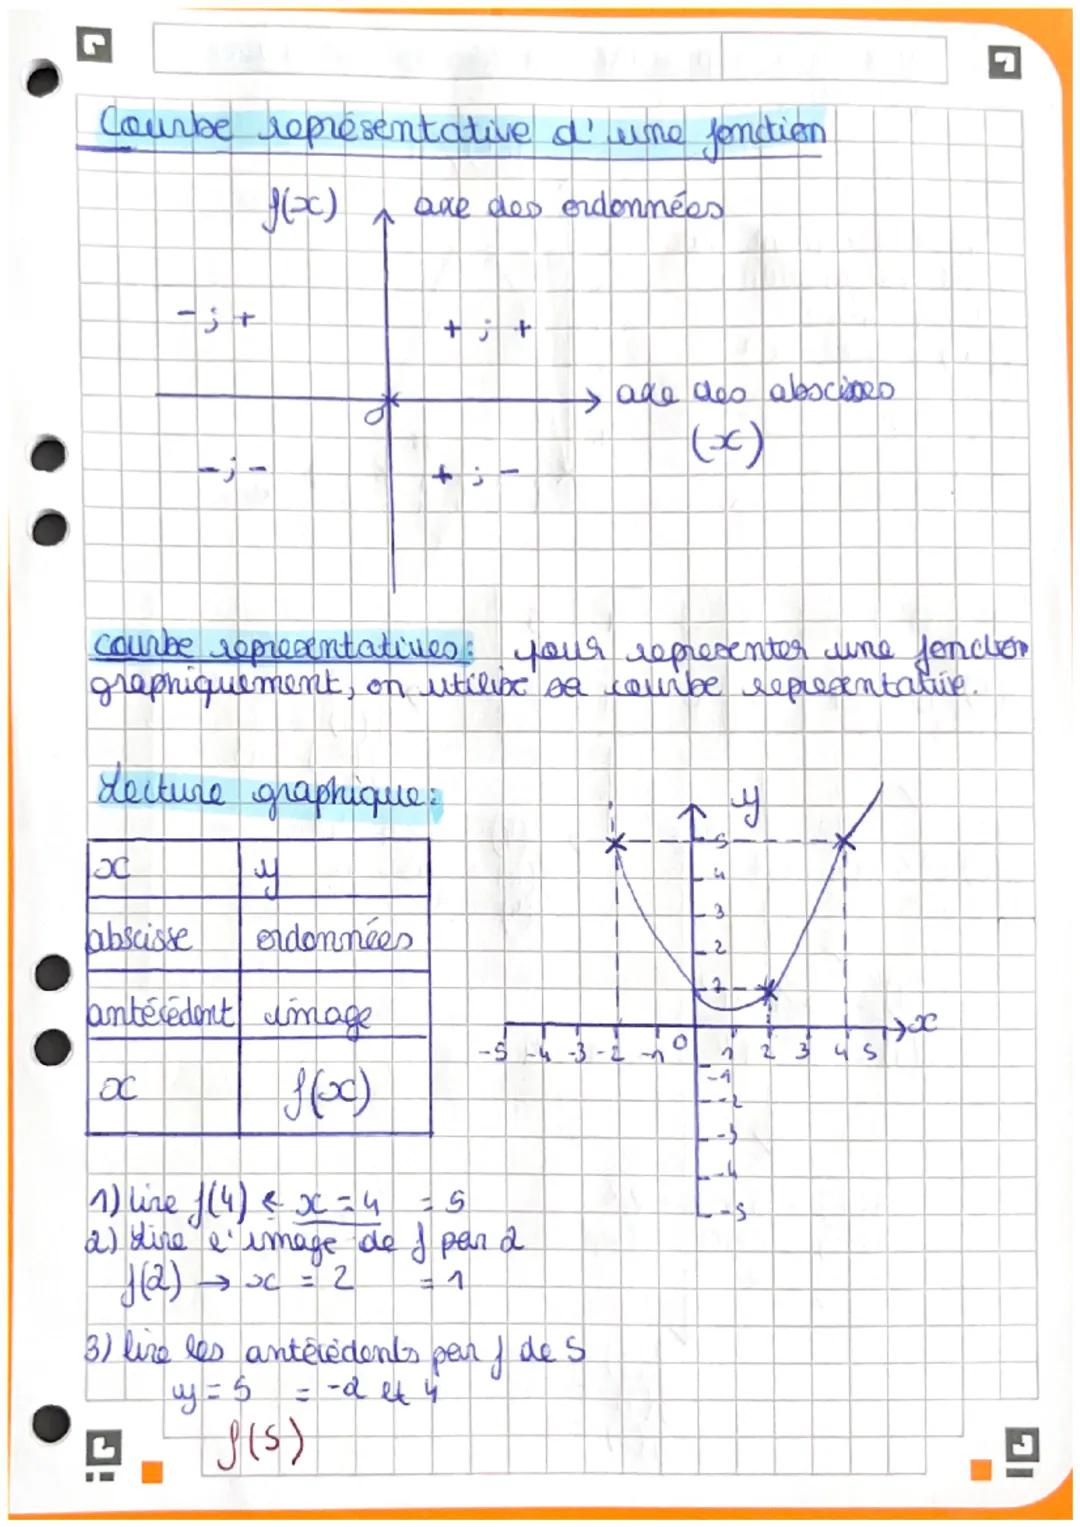 Courbe représentative d'une fonction
f(x) axe des ordonnées
- ; + + ; +
axe des abscisses
O
(x)
- ; - + ; -
courbe representatives: pour representer une fonction
graphiquement, on utilise sa courbe representative.
Lecture graphique:
x y
abscisse ordonnées
antécédent image
x f(x)
y
5
4
3
2
1
-5 -4 -3 -2 -1 0 1 2 3 4 5 x
-1
-2
-3
-4
-5
1) lire f(4) ← x = 4 = 5
2) Lire l'image de f par 2
f(2) → x = 2 = 1
3) lire les antécédents par f de 5
y = 5 = -2 et 4
f(5)